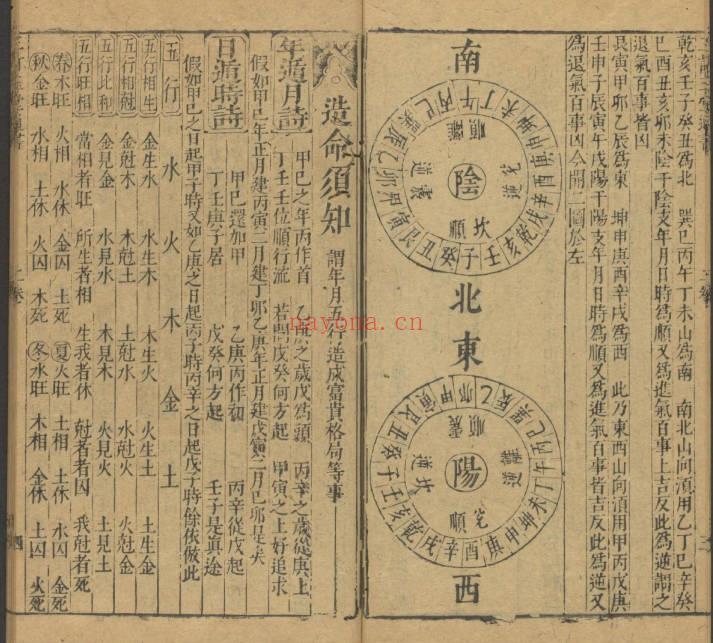 乾亥壬子癸丑為北　巽巳丙午丁未山為南　南北山向湏用乙丁巳辛癸
巳酉丑亥卯未陰干陰支年月日時為順又為進氣百事上吉反此為逆謂之
退氣百事皆凶
艮寅甲卯乙辰為東　坤申庚酉辛戌為西　此乃東西山向湏用甲丙戊庚
壬申子辰寅午戌陽干陽支年月日時為順又為進氣百事皆吉反此為逆又
為退氣百事凶今開二圖於左
南
陰
順離
逆兌
順坎
逆震
丙午丁未坤申庚酉辛戌乾亥壬子癸丑艮寅甲卯乙辰巽巳
北
東
陽
順震
逆離
順兌
逆坎
甲卯乙辰巽巳丙午丁未坤申庚酉辛戌乾亥壬子癸丑艮寅
西
造命須知　謂年月五行造成富貴格局等事
年遁月詩
甲巳之年丙作首　乙庚之歲戊為頭　丙辛之歲從庚上
丁壬壬位順行流　若問戊癸何方起　甲寅之上好追求
假如甲巳年正月建丙寅二月建丁卯乙庚年正月建戊寅二月巳卯是矣
日遁時詩
甲巳還加甲　乙庚丙作初　丙辛從戊起
丁壬庚子居　戊癸何方起　壬子是真途
假如甲巳之日起甲子時又如乙庚之日起丙子時丙辛之日起戊子時餘依倣此
五行　水　火　木　金　土
五行相生　金生水　水生木　木生火　火生土　土生金
五行相尅　金尅木　木尅土　土尅水　水尅火　火尅金
五行比和　金見金　水見水　木見木　火見火　土見土
五行旺相　當相者旺　所生者相　生我者休　尅者者囚　我尅者死
春木旺　火相　水休　金囚　土死　夏火旺　土相　木休　水囚　金死
秋金旺　水相　土休　火囚　木死　冬水旺　木相　金休　土囚　火死
四
nayona.cn